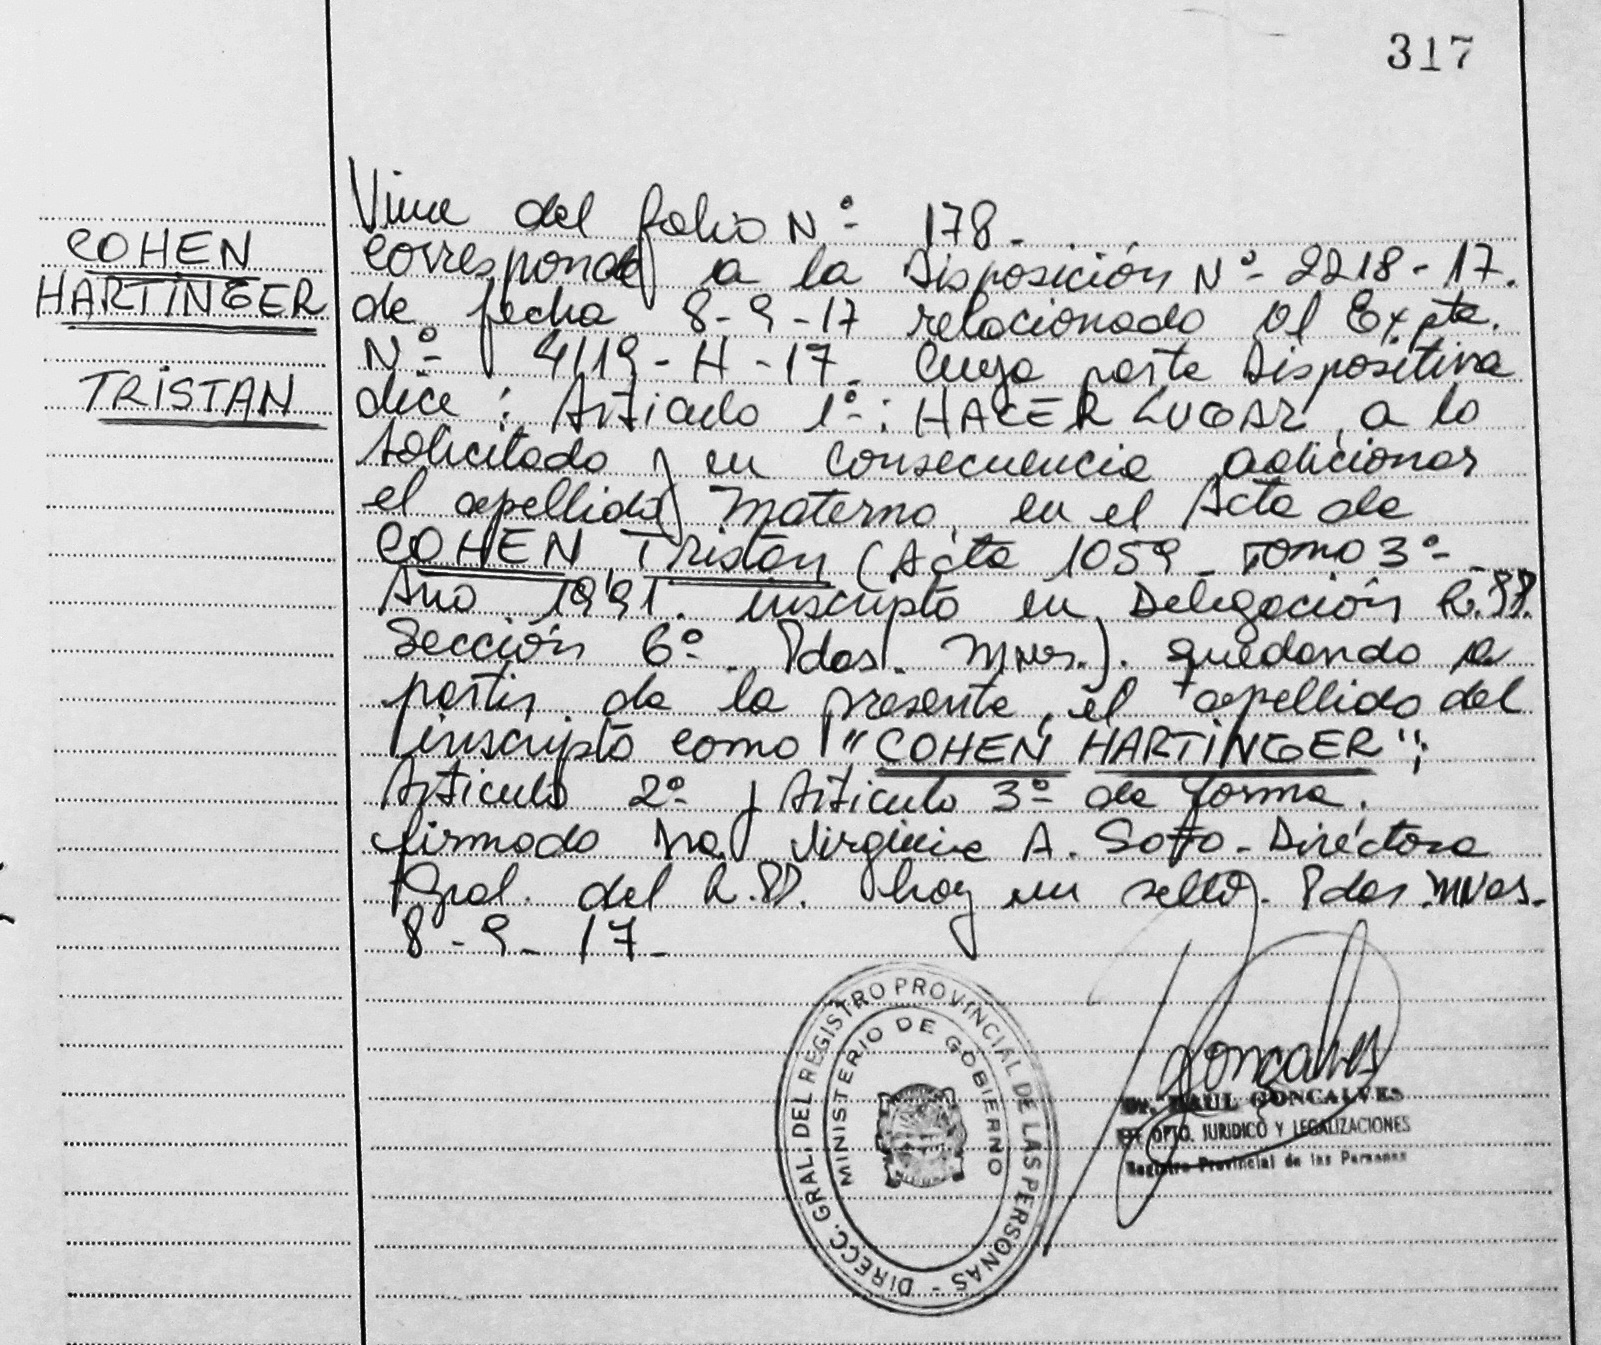 317
COHEN
HARTINGER
TRISTAN
Viene del folio Nº 178.
corresponde a la Disposición Nº 2218-17.
de fecha 8-9-17 relacionado al Expte.
Nº 4119-H-17. Cuya parte Dispositiva
dice: Artículo 1º: HACER LUGAR, a lo
solicitado y en consecuencia adicionar
el apellido Materno, en el Acta de
COHEN Tristán (Acta 1059 - Tomo 3º -
Año 1991. inscripto en Delegación R.PP.
Sección 6º. Pdas. Mnes.). quedando a
partir de la presente, el apellido del
inscripto como "COHEN HARTINGER";
Artículo 2º y Artículo 3º de forma.
firmado Dra. Virginia A. Sotto - Directora
Gral. del R.PP. hay un sello. Pdas. Mnes.
8-9-17-
DIRECC. GRAL. DEL REGISTRO PROVINCIAL DE LAS PERSONAS -
MINISTERIO DE GOBIERNO
Goncalves
Dr. RAUL GONCALVES
DPTO. JURIDICO Y LEGALIZACIONES
Registro Provincial de las Personas